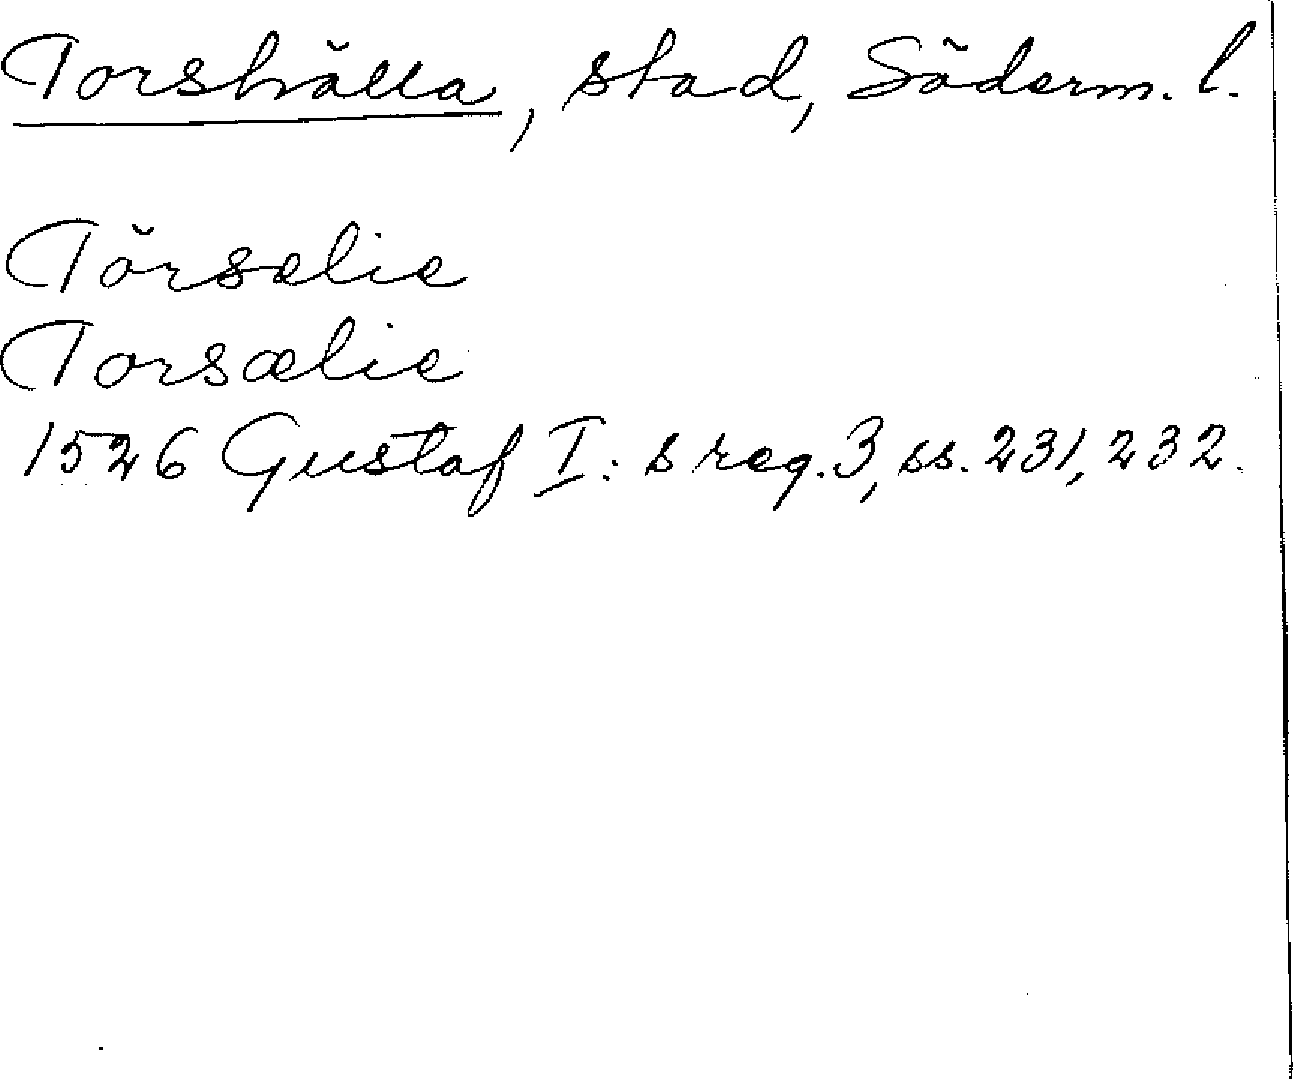 Torshälla, stad, Söderm. l.
Törsælie
Torsælie
1526 Gustaf I:s reg. 3, ss. 231, 232.